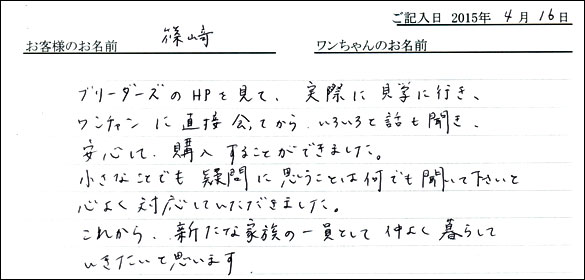 ご記入日 2015年 4月 16日
お客様のお名前 篠﨑 ワンちゃんのお名前
ブリーダーズのHPを見て、実際に見学に行き、
ワンチャンに直接会ってから、いろいろと話も聞き、
安心して、購入することができました。
小さなことでも疑問に思うことは何でも聞いて下さいと
心よく対応していただきました。
これから、新たな家族の一員として仲よく暮らして
いきたいと思います